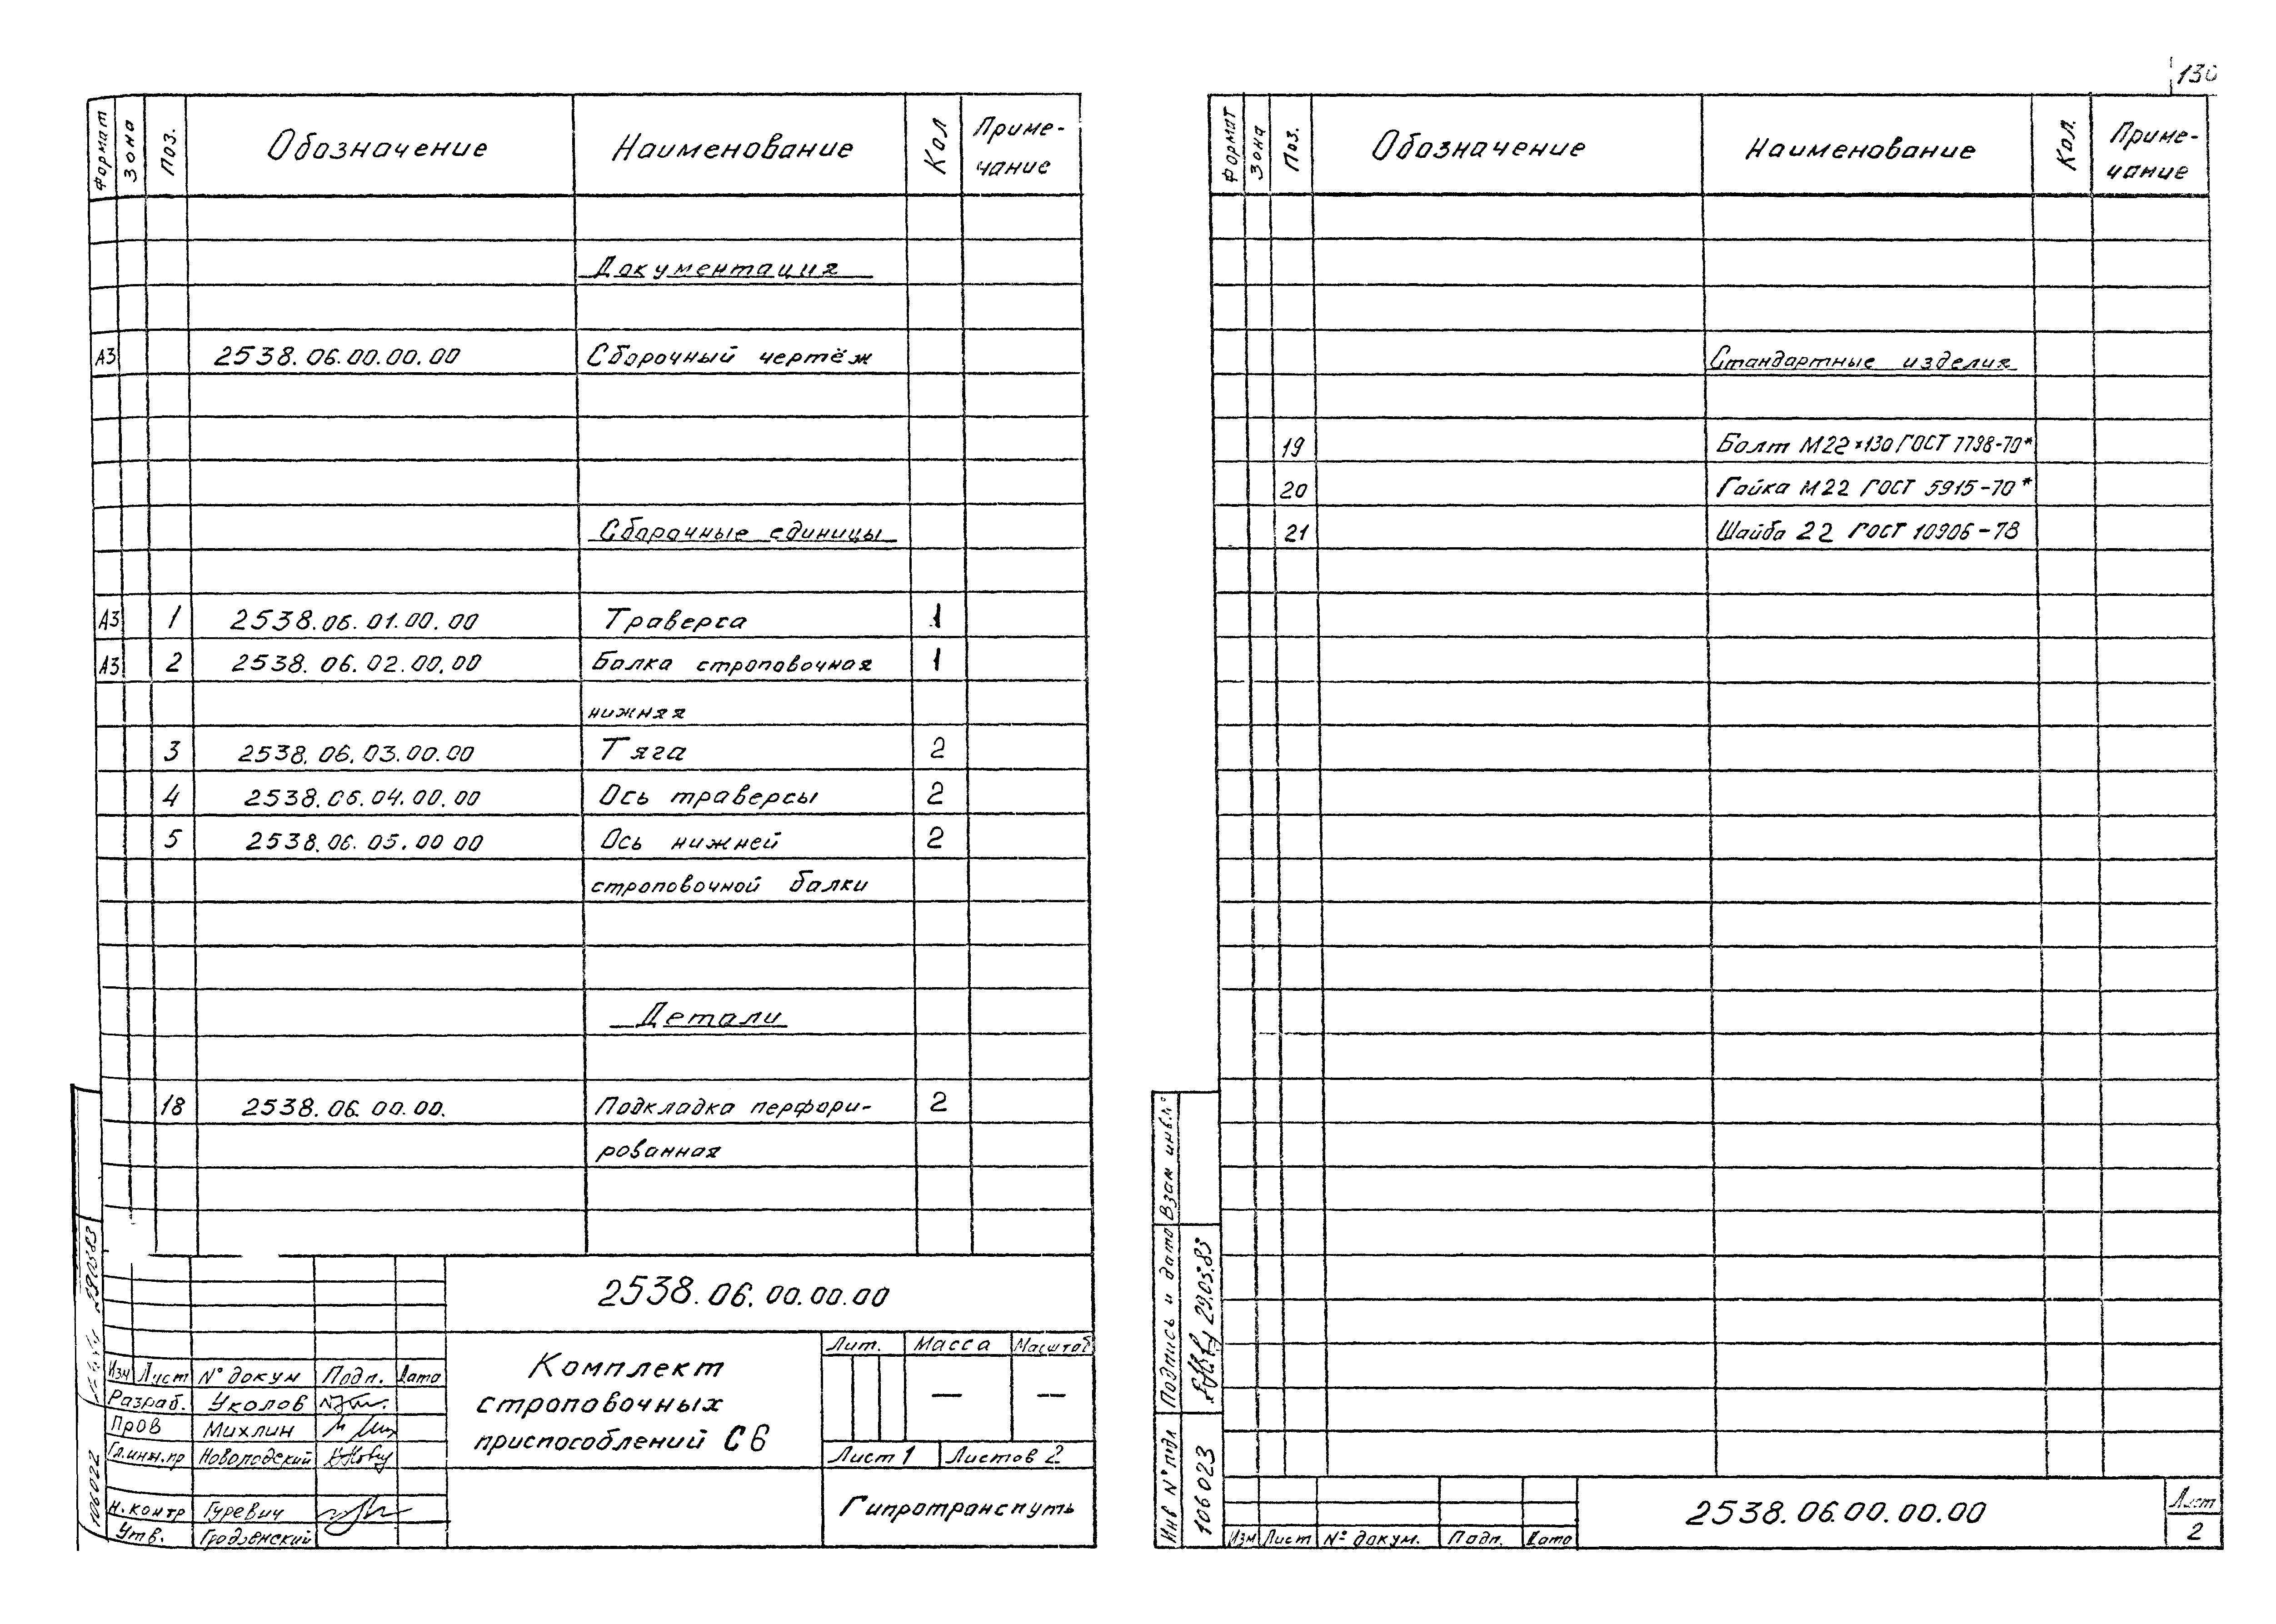 130
Формат Зона Поз. Обозначение Наименование Кол Приме-
чание
Документация
А3 2538.06.00.00.00 Сборочный чертёж
Сборочные единицы
А3 1 2538.06.01.00.00 Траверса 1
А3 2 2538.06.02.00.00 Балка строповочная 1
нижняя
3 2538.06.03.00.00 Тяга 2
4 2538.06.04.00.00 Ось траверсы 2
5 2538.06.05.00 00 Ось нижней 2
строповочной балки
Детали
18 2538.06.00.00. Подкладка перфори- 2
рованная
2538.06.00.00.00
Изм Лист № докум Подп. Дата
Разраб. Уколов
Пров Михлин
Гл.инж.пр
Н.контр Гуревич
Утв. Гродзенский
Комплект
строповочных
приспособлений С6
Лит. Масса Масштаб
— —
Лист 1 Листов 2
Гипротранспуть
106022
Формат Зона Поз. Обозначение Наименование Кол. Приме-
чание
Стандартные изделия
19 Болт М22×130 ГОСТ 7798-70*
20 Гайка М22 ГОСТ 5915-70*
21 Шайба 22 ГОСТ 10906-78
Взам инв.№
Подпись и дата 29.05.85
Инв № подл 106023
Изм Лист № докум. Подп. Дата
2538.06.00.00.00
Лист
2